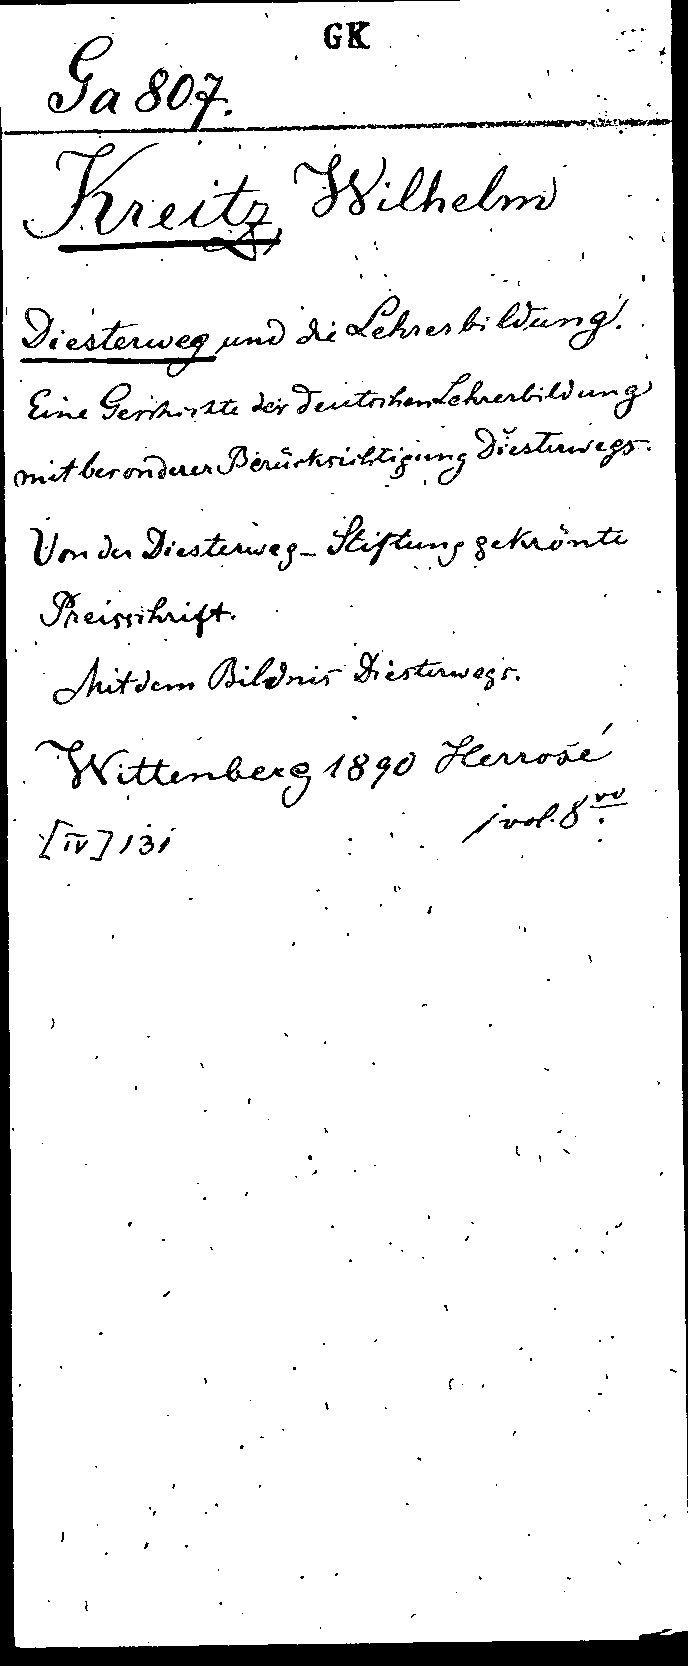 GK
Ga 807.
Kreitz, Wilhelm
Diesterweg und die Lehrerbildung.
Eine Geschichte der deutschen Lehrerbildung
mit besonderer Berücksichtigung Diesterwegs.
Von der Diesterweg-Stiftung gekrönte
Preisschrift.
Mit dem Bildnis Diesterwegs.
Wittenberg 1890 Herrosé
[IV] 131 1 vol. 8vo